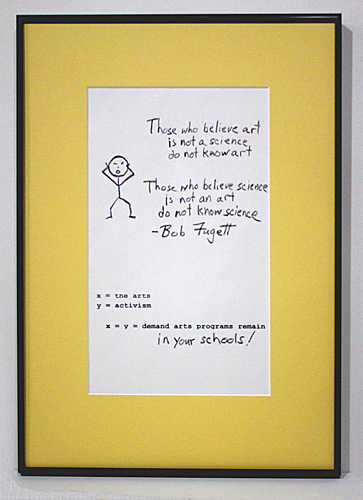 Those who believe art
is not a science
do not know art
Those who believe science
is not an art
do not know science
-Bob Fugett
x = the arts
y = activism
x = y = demand arts programs remain
in your schools!